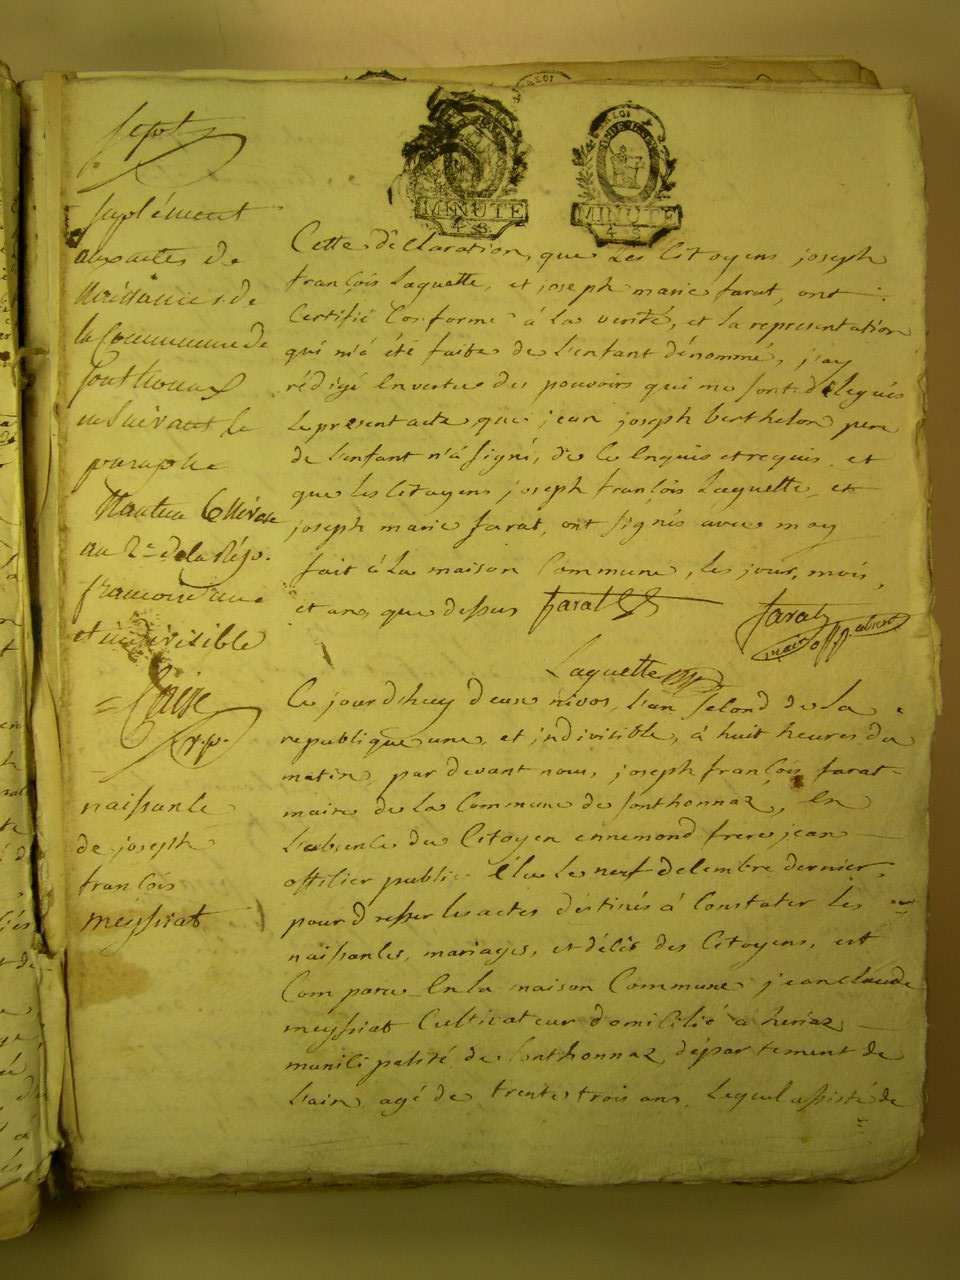 sept
suplément
aux actes de
Naissances de
la Commune de
Sonthonnax
en suivant le
paraphe
Nantua le Nivose
an 2e de la Rép.
francoise une
et indivisible
naissance
de joseph
françois
meyssiat
MINUTE
4 S.
MINUTE
4 S.
Cette déclaration, que les Citoyens joseph
françois Laguette, et joseph marie farat, ont
Certifié Conforme à la verité, et la representation
qui m'a été faite de l'enfant dénommé, j'ay
rédigé en vertu des pouvoirs qui me sont délégués
le present acte que jean joseph berthelon pere
de l'enfant n'a signé, de ce enquis et requis, et
que les Citoyens joseph françois Laguette, et
joseph marie farat, ont signés avec moy
fait à la maison Commune, les jour, mois,
et an, que dessus farat
farat
maire off. public
Laguette
Ce jourd'huy deux nivos, l'an second de la
republique une, et indivisible, à huit heures du
matin, par devant nous, joseph françois farat
maire de la Commune de sonthonnax, en
l'absence du Citoyen ennemond frere jean
officier public élu le neuf decembre dernier,
pour dresser les actes destinés à Constater les
naissances, mariages, et décés des Citoyens, est
Comparu en la maison Commune, jean claude
meyssiat Cultivateur domicilié a heriaz
municipalité de sonthonnax, département de
l'ain, agé de trente trois ans, Lequel assisté de